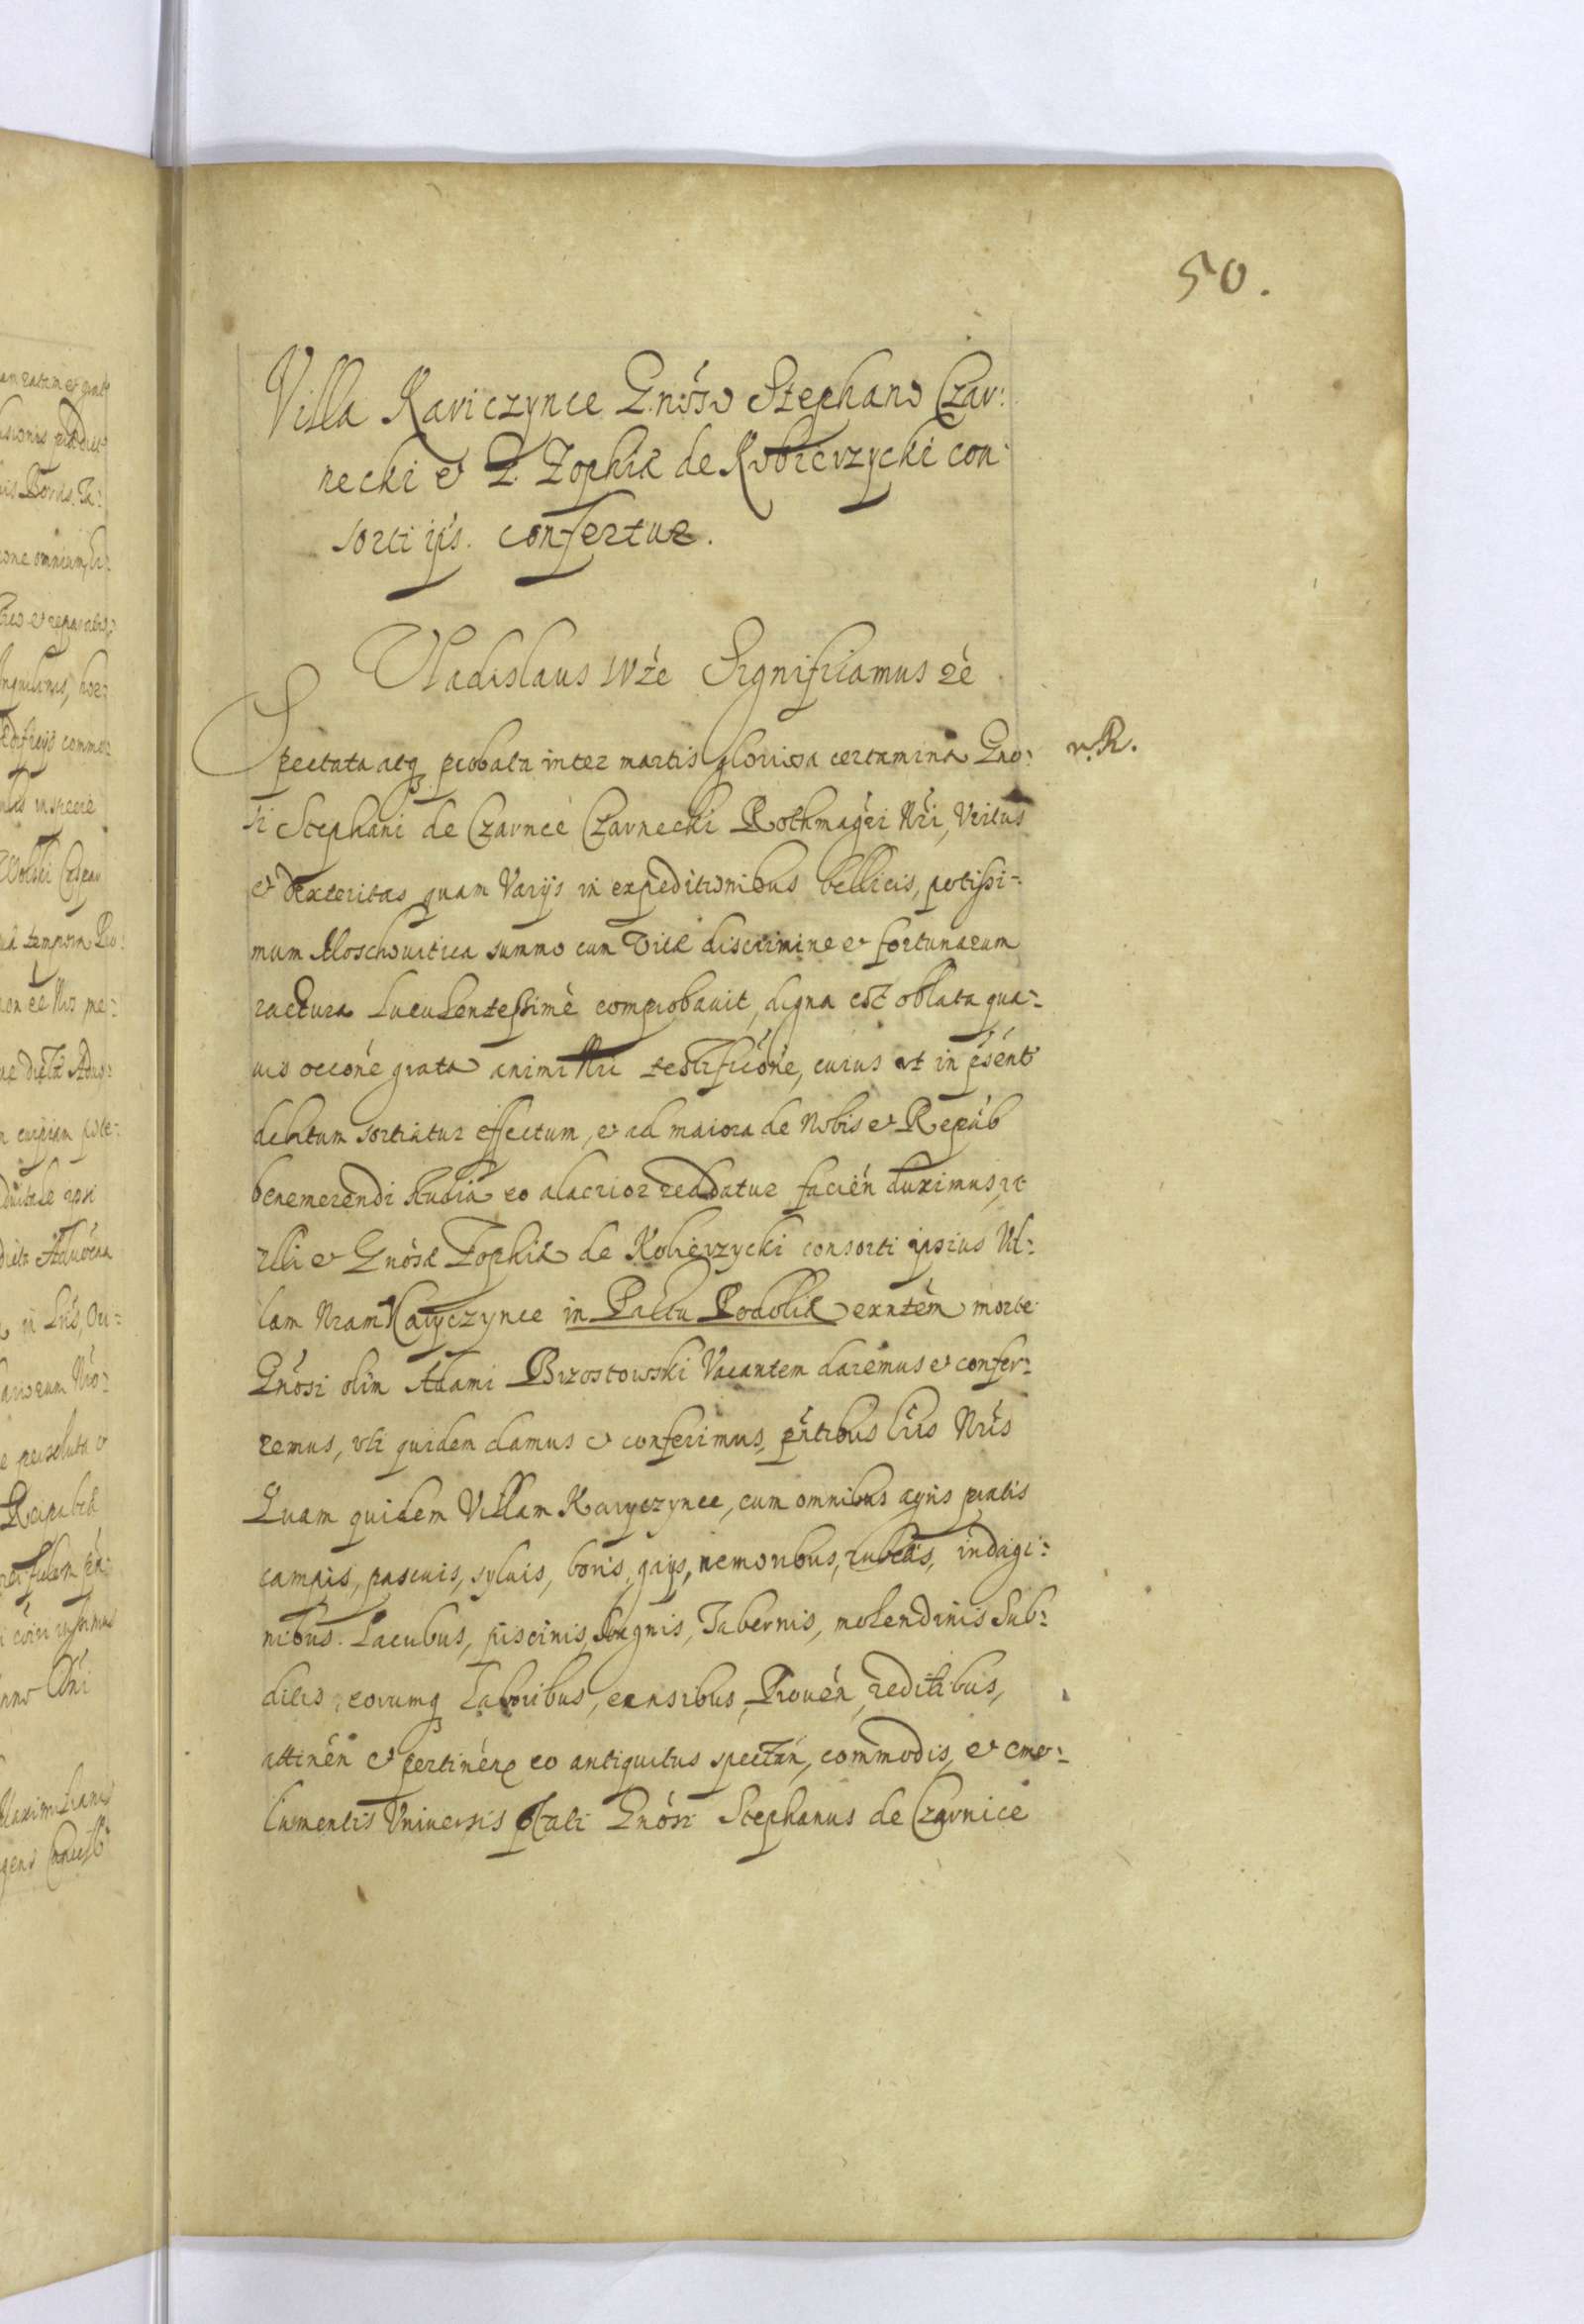 50.
Villa Kariczynce G.nóso Stephano Czar:
necki et G. Zophiæ de Kobierzycki con:
sorti ips. confertur.
Vladislaus IVże Significamus ré
Spectata atq probata inter martis gloriosa certamina Gno:
v. R.
si Stephani de Czarnce Czarnecki Rothmagri Nri, Virtus
et dexteritas quam Varijs in expeditionibus bellicis, potissi-
mum Moschouitica summo cum Vitæ discrimine et fortunarum
iactura Luculentessimè comprobauit, digna est oblata qua-
uis occóne grata animi Nri testificóne, cuius vt in psént
debitum sortiatur effectum, et ad maiora de Nobis et Repub
benemerendi studia eo alacrior reddatur facién duximus, vt
illi et Gnósæ Zophiæ de Kobierzycki consorti ipsius Vil-
lam Nram Karyczynce in Pałtu Podoliæ exntem morte
Gnósi olim Adami Brzostowski Vacantem daremus et confer-
remus, vti quidem damus et conferimus, pntibus Lris Nris
Quam quidem Villam Karyczynce, cum omnibus agris pratis
campis, pascuis, syluis, boris, gays, nemoribus, rubetis, indagi:
nibus. Lacubus, piscinis, Stagnis, Tabernis, molendinis Sub-
ditis, eorumq Laboribus, censibus, Prouén, reditibus,
attinén et pertinén, eo antiquitus spectán, commodis, et emo-
lumentis Vniuersis pttati Gnósi Stephanus de Czarnice